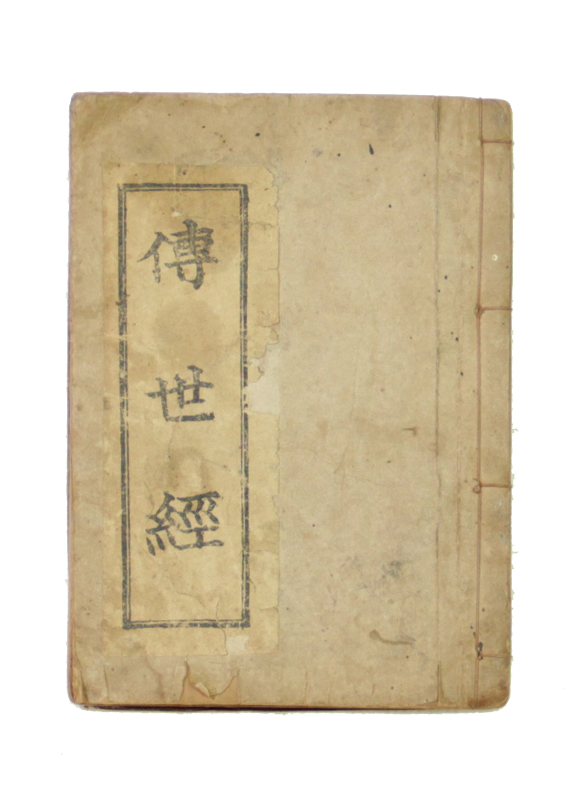 傳世經